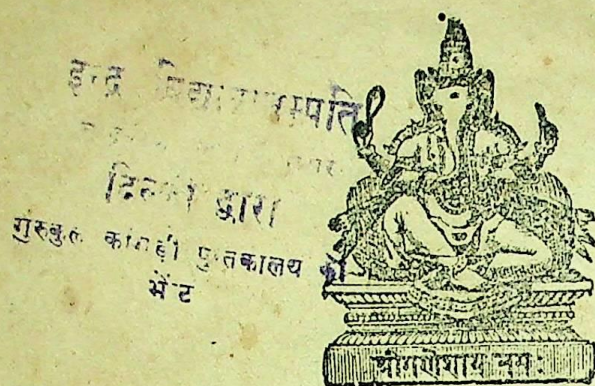 इन्द्र विद्यावाचस्पति
नगर
दिल्ली द्वारा
गुरुकुल कांगड़ी पुस्तकालय को
भेंट
श्रीगणेशाय नमः